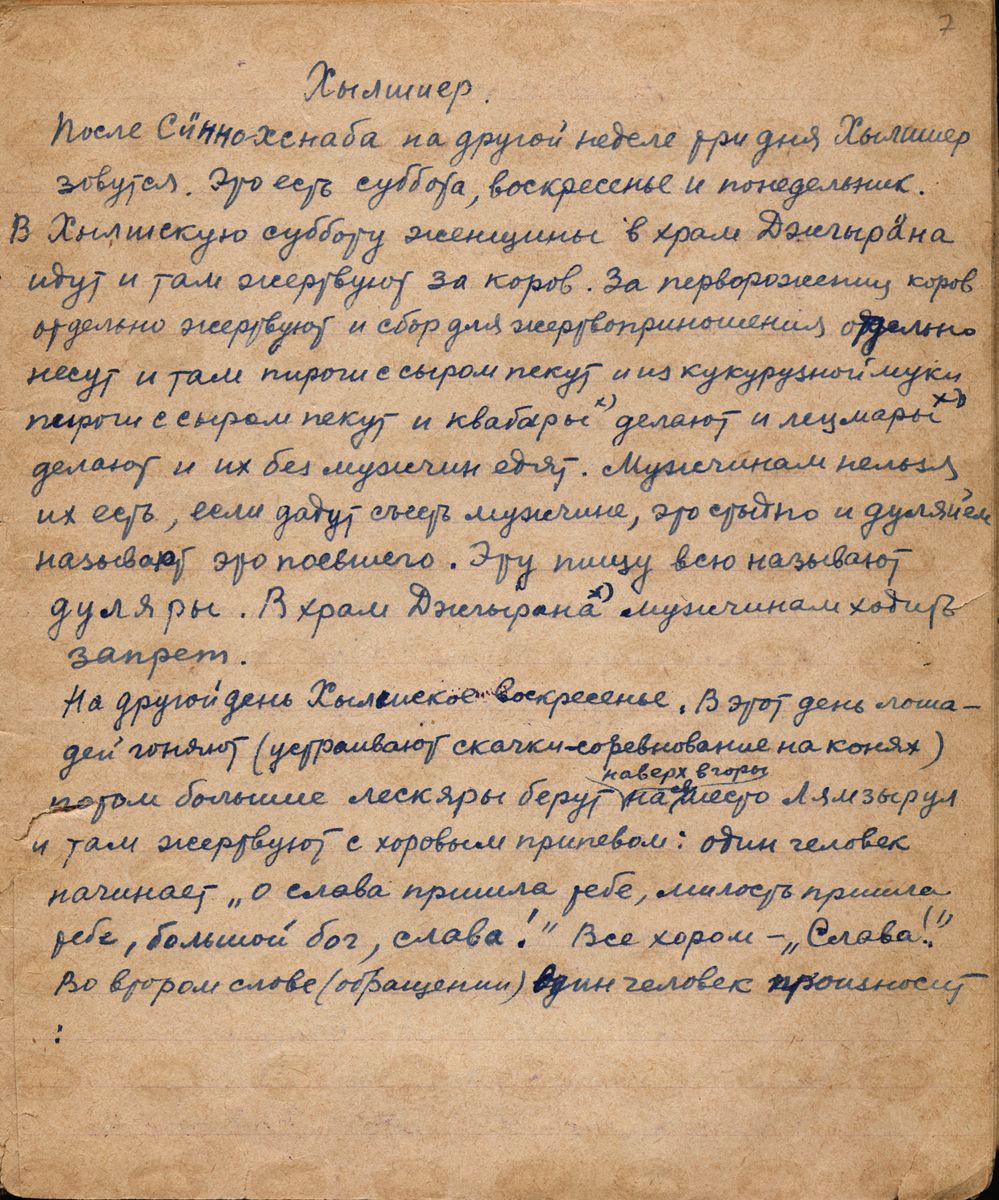 7
Хылшиер.
После Сӥнно-хснаба на другой неделе три дня Хылишер
зовутся. Это есть суббота, воскресенье и понедельник.
В Хылшскую субботу женщины в храм Джгырӓна
идут и там жертвуют за коров. За перворожениц коров
отдельно жертвуют и сбор для жертвоприношения отдельно
несут и там пироги с сыром пекут и из кукурузной муки
пироги с сыром пекут и квабӓры х) делают и лецмары хх)
делают и их без мужчин едят. Мужчинам нельзя
их есть, если дадут съесть мужчине, это стыдно и дуляйем
называют это поевшего. Эту пищу всю называют
дуляры. В храм Джгырӓна х) мужчинам ходить
запрет.
На другой день Хылшское воскресенье. В этот день лоша-
дей гоняют (устраивают скачки-соревнование на конях)
наверх в горы
потом большие лескяры берут на место Лямзырул
и там жертвуют с хоровым припевом: один человек
начинает „О слава пришла тебе, милость пришла
тебе, большой бог, слава!" Все хором – „Слава!"
Во втором слове (обращении) один человек произносит
: